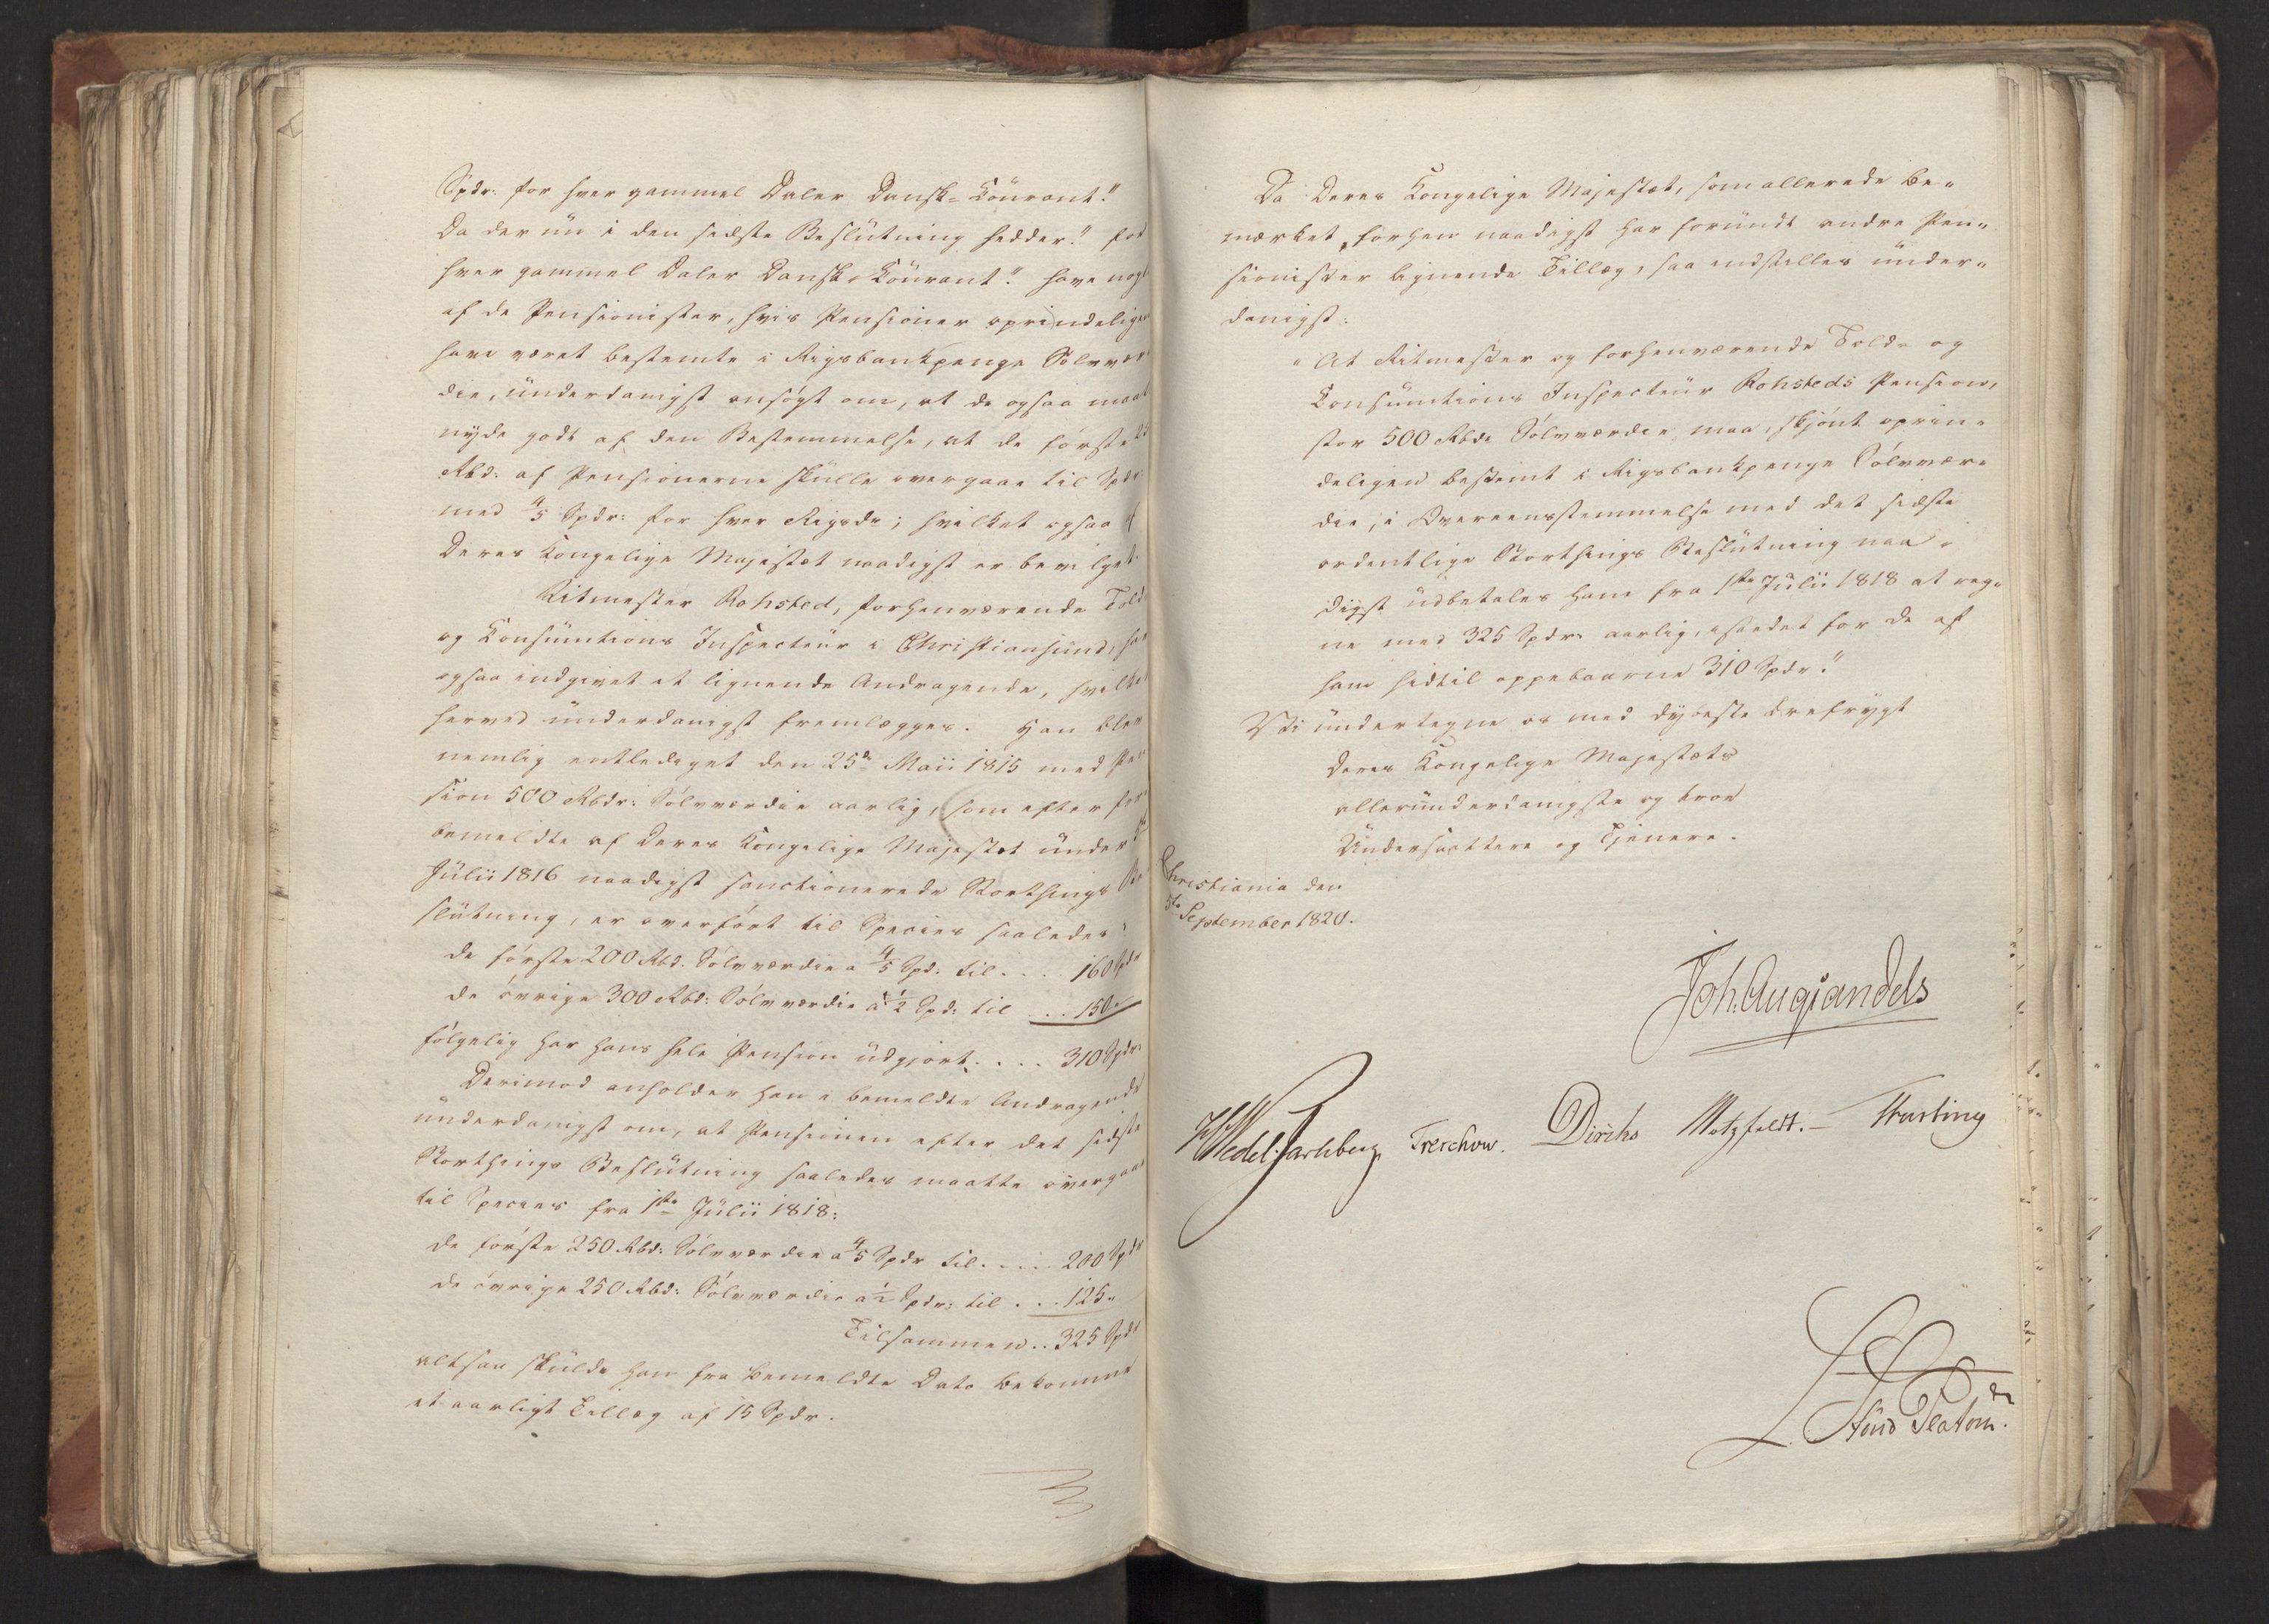 Spdr. for hver gammel Daler Dansk-Courant."
Da der nu i den sidste Beslutning hedder: "for
hver gammel Daler Dansk-Courant." have nogle
af de Pensionister, hvis Pensioner oprindeligen
have været bestemte i Rigsbankpenge Sølvvær-
die, underdanigst ansøgt om, at de ogsaa maatte
nyde godt af den Bestemmelse, at de første
Rbd: af Pensionerne skulle overgaae til Spdr
med 4/5 Spdr: for hver Rigsdr; hvilket ogsaa af
Deres Kongelige Majestæt naadigst er bevilget.
Ritmester Rohsted, forhenværende Told
og Konsumtions Inspecteur i Christiansund, har
ogsaa indgivet et lignende Andragende, hvilket
herved underdanigst fremlægges. Han blev
nemlig entlediget den 25de Maii 1815 med Pen
sion 500 Rbdr: Sølvværdie aarlig, som efter for
bemeldte af Deres Kongelige Majestæt under
Julii 1816 naadigst sanctionerede Storthings Be
slutning, er overført til Species saaledes:
de første 200 Rbd. Sølvværdie a 4/5 Spd: til .... 160 Spdr
de øvrige 300 Rbd: Sølvværdie à 1/2 Spd: til ... 150 "
følgelig har hans hele Pension udgjort .... 310 Spdr.
Derimod anholder han i bemeldte Andragende
underdanigst om, at Pensionen efter det sidste
Storthings Beslutning saaledes maatte overgaae
til Species fra 1ste Julii 1818:
de første 250 Rbd: Sølvværdie a 4/5 Spdr til ..... 200 Spdr
de øvrige 250 Rbd: Sølvværdie a 1/2 Spdr: til ... 125 "
Tilsammen .. 325 Spdr
altsaa skulde han fra bemeldte Dato bekomme
et aarligt Tillæg af 15 Spdr.
Da Deres Kongelige Majestæt, som allerede be-
mærket, forhen naadigst har forundt andre Pen-
sionister lignende Tillæg, saa indstilles under-
danigst:
"At Ritmester og forhenværende Told- og
Consumtions Inspecteur Rohsteds Pension,
stor 500 Rbdr Sølvværdie, maa, skjønt oprin-
deligen bestemt i Rigsbankpenge Sølvvær-
die, i Overeensstemmelse med det sidste
ordentlige Storthings Beslutning naa-
digst udbetales ham fra 1ste Julii 1818 at reg-
ne med 325 Spdr: aarlig, istedet for de af
ham hidtil oppebaarne 310 Spdr."
Vi undertegne os med dybeste Ærefrygt
Deres Kongelige Majestæts
allerunderdanigste og troe
Undersaattere og Tjenere.
Christiania den
5te September 1820.
Joh. Aug Sandels
HWedel Jarlsberg Treschow. Diriks Motzfeldt. – Fasting
L. Stoud Platou